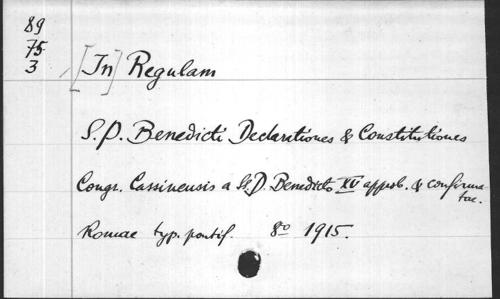 89
75
3
[In] Regulam
S. P. Benedicti Declarationes & Constitutiones
Congr. Cassinensis a SS. D. Benedicto XV approb. & confirma-
tae.
Romae typ. pontif. 8° 1915.